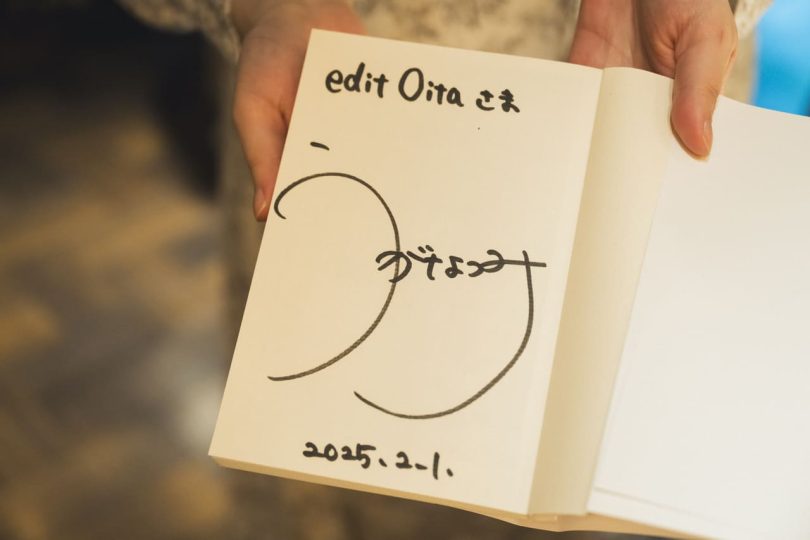 edit Oita さま
うがなつみ
2025.2.1.